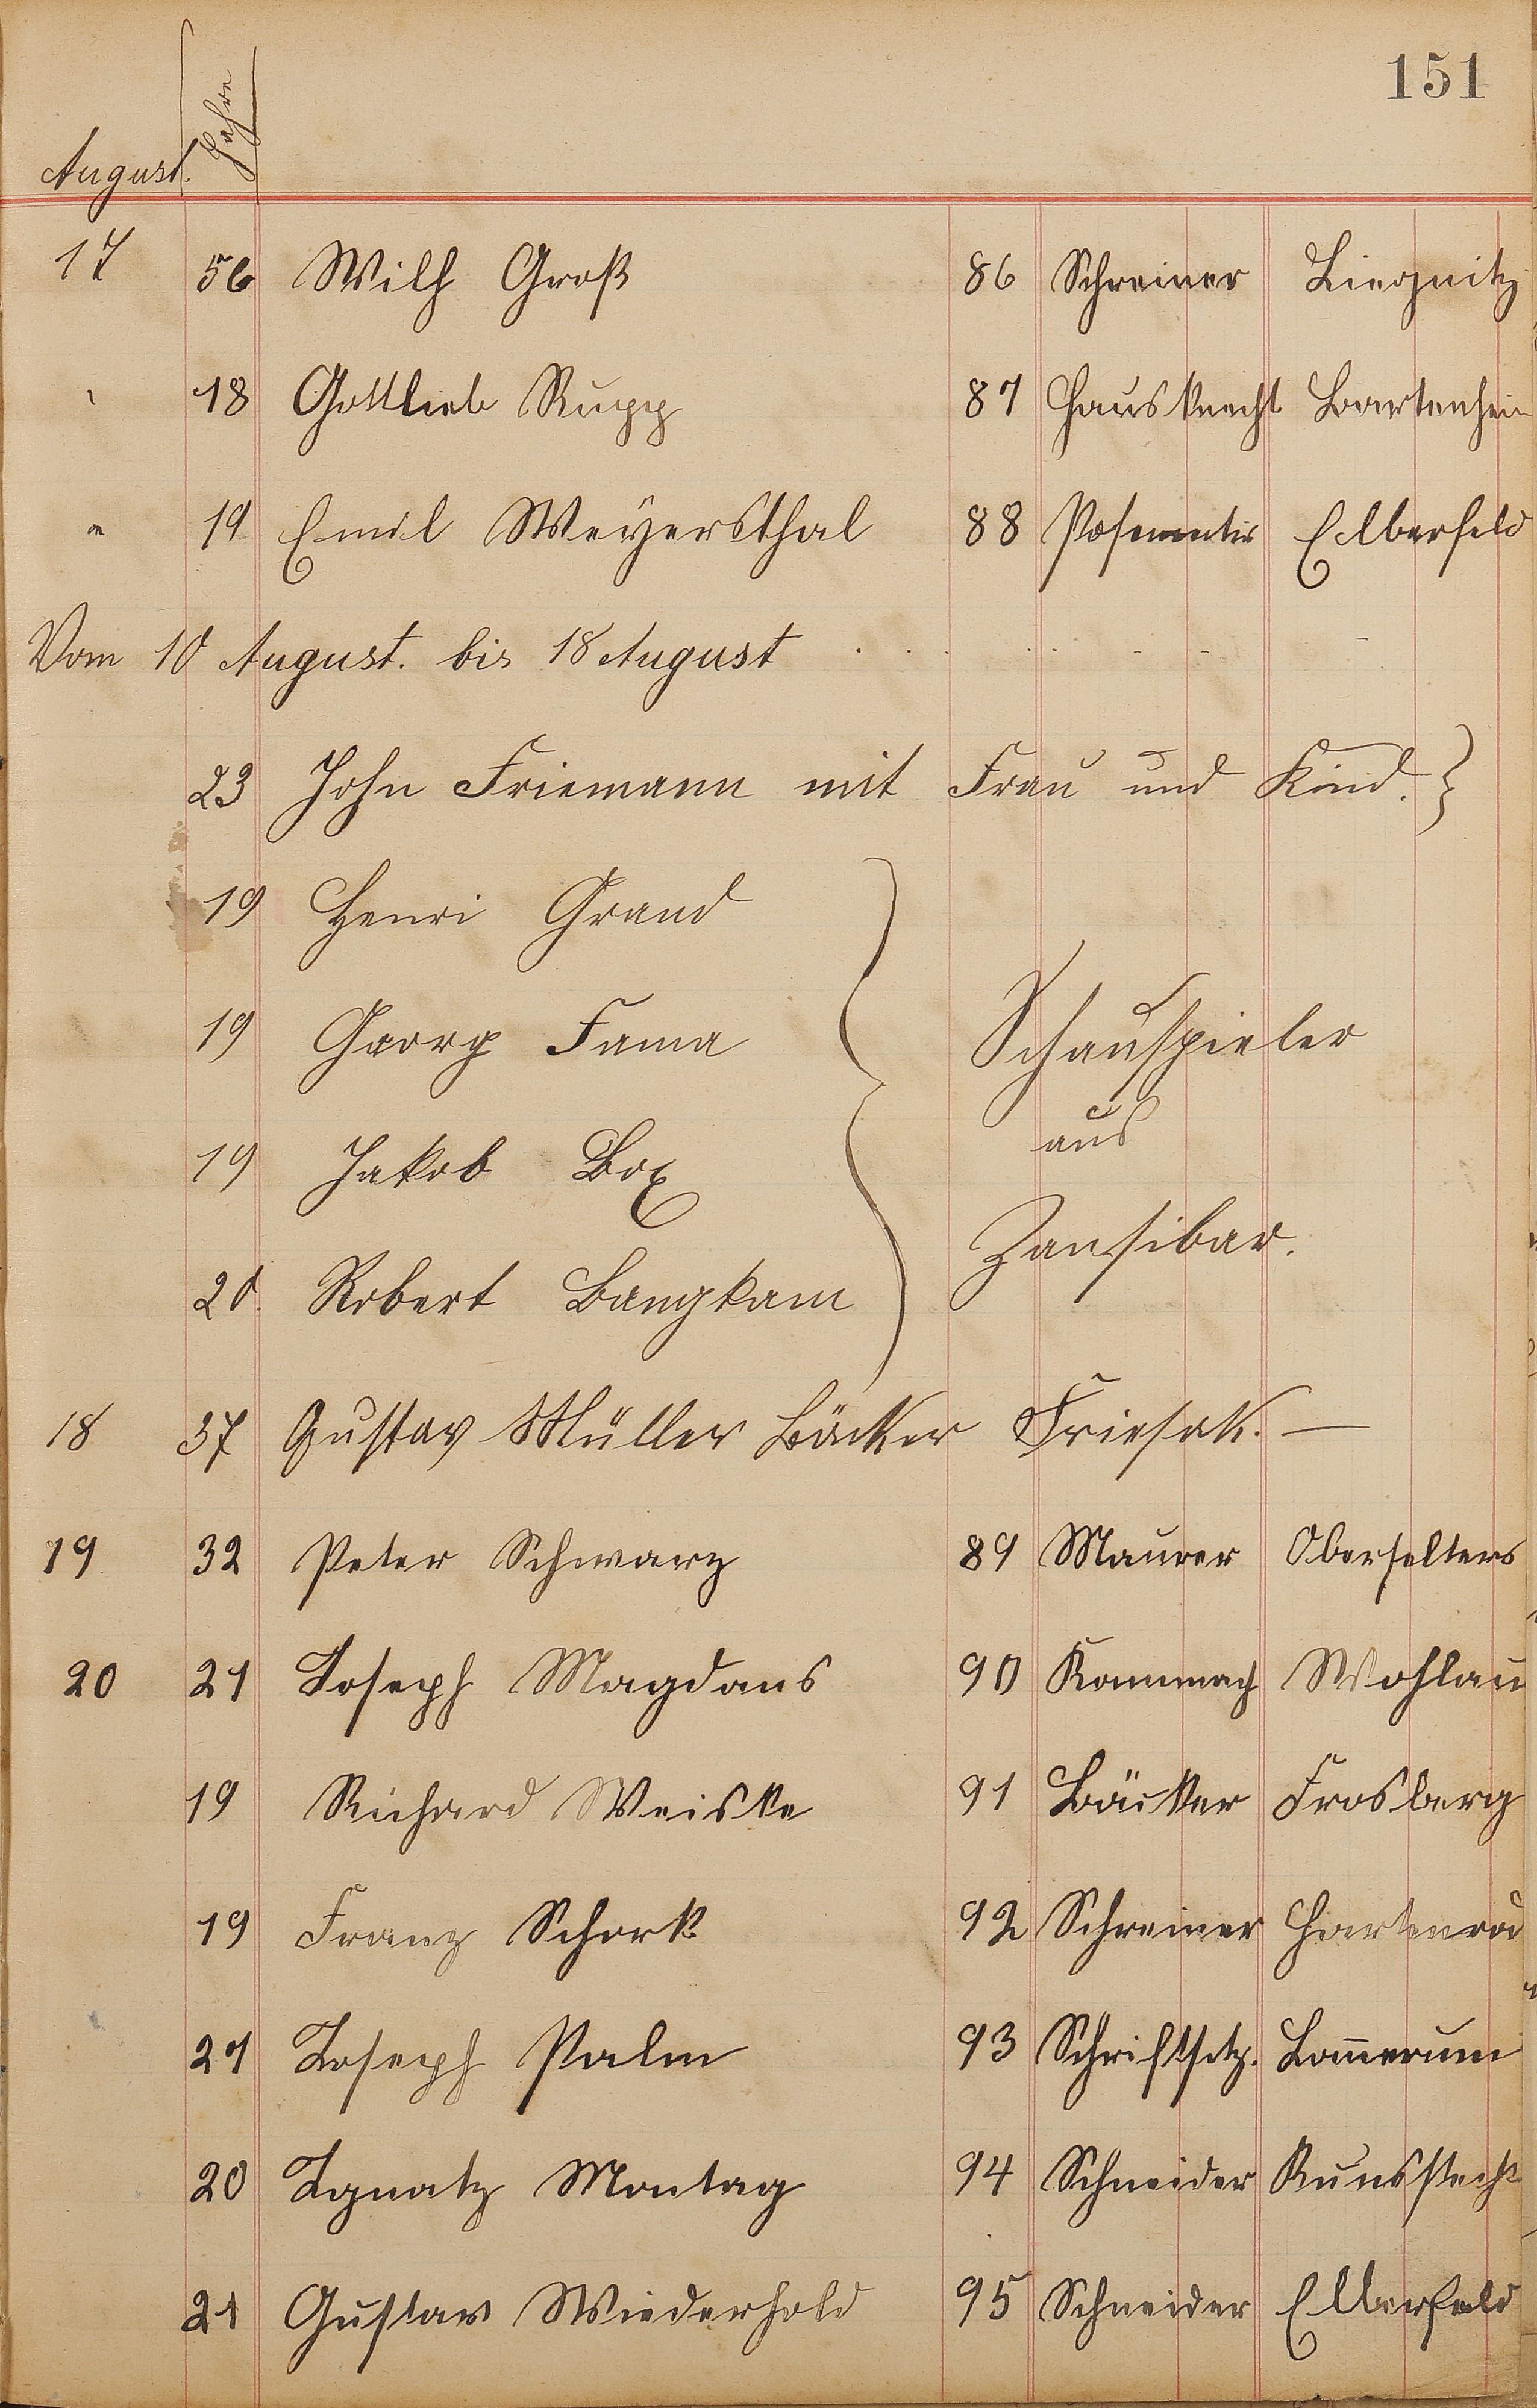 151
August. Jahre
17 56 Wilh Groß 86 Schreiner Liegnitz
" 18 Gottlieb Rupp 87 Hausknecht Bartenhein
" 19 Emil Weyersthal 88 Posamentir Elberfeld
Vom 10 August. bis 18 August
23 John Friemann mit Frau und Kind. }
19 Henri Grand
19 Georg Fama Schauspieler
aus
19 Jakob Box
Zansibar.
20. Robert Bangkam
18 37 Gustav Müller Bäcker Friesak. —
19 32 Peter Schwarz 89 Maurer Oberselters
20 21 Joseph Magdans 90 Kammach Wohlau
19 Richard Weiske 91 Bäcker Frosberg
19 Franz Schork 92 Schreiner Hartenrod
21 Joseph Palm 93 Schriftsetz.
20 Ignatz Montag 94 Schneider
21 Gustav Wiederhold 95 Schneider Elberfeld